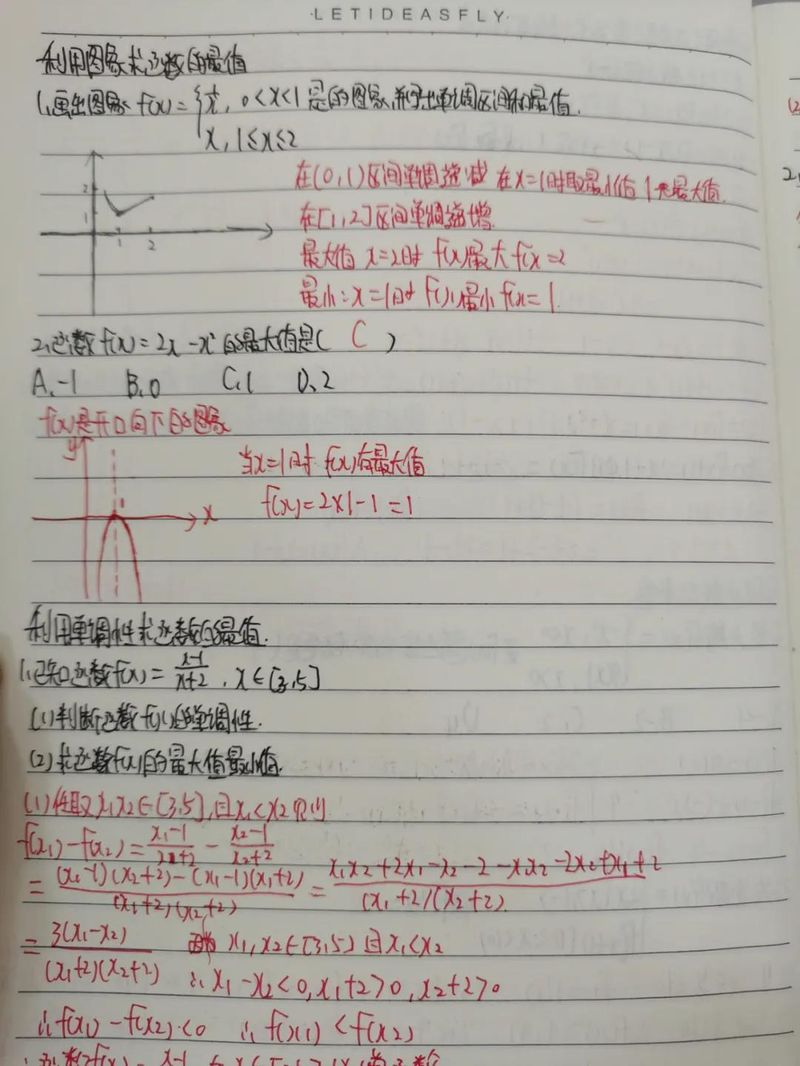 LETIDEASFLY
利用图象求函数的最值
1.画出图象 f(x) = { 1/x, 0<x<1 是的图象,并写出单调区间和最值.
x, 1≤x≤2
在(0,1)区间单调递减 在x=1时取最小值1 最大值
在[1,2]区间单调递增
最大值 x=2时 f(x)最大 f(x=2
最小:x=1时 f(x)最小 f(x=1.
2
1
1 2
2.函数f(x)=2x-x²的最大值是( C )
A、-1 B、0 C、1 D、2
f(x)是开口向下的图象
y
当x=1时 f(x)有最大值
f(x)=2×1-1=1
1
x
利用单调性求函数的最值.
1.已知函数f(x)= x-1/x+2 , x∈[3,5]
(1)判断函数f(x)的单调性.
(2)求函数f(x)的最大值最小值.
(1)任取x₁x₂∈[3,5],且x₁<x₂则
f(x₁)-f(x₂)= x₁-1/x₁+2 - x₂-1/x₂+2
= (x₁-1)(x₂+2)-(x₁-1)(x₁+2)/(x₁+2)(x₂+2) = x₁x₂+2x₁-x₂-2-x₁x₂-2x₂+x₁+2/(x₁+2)(x₂+2)
= 3(x₁-x₂)/(x₁+2)(x₂+2) 因为 x₁,x₂∈[3,5) 且x₁<x₂
∴x₁-x₂<0,x₁+2>0,x₂+2>0
∴f(x₁)-f(x₂)<0 ∴f(x₁)<f(x₂)